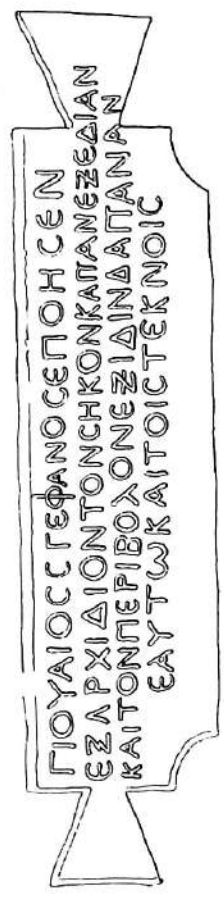 ΓΙΟΥΑΙΟϹϹΓΕΦΑΝΟϹΕΠΟΗϹΕΝ
ΕΖΑΡΧΙΔΙΟΝΤΟΝϹΗΚΟΝΚΑΠΑΝΕΞΕΔΙΑΝ
ΚΑΙΤΟΝΠΕΡΙΒΟΛΟΝΕΞΙΔΙΝΔΑΠΑΝΑΝ
ΕΑΥΤΩΚΑΙΤΟΙϹΤΕΚΝΟΙϹ